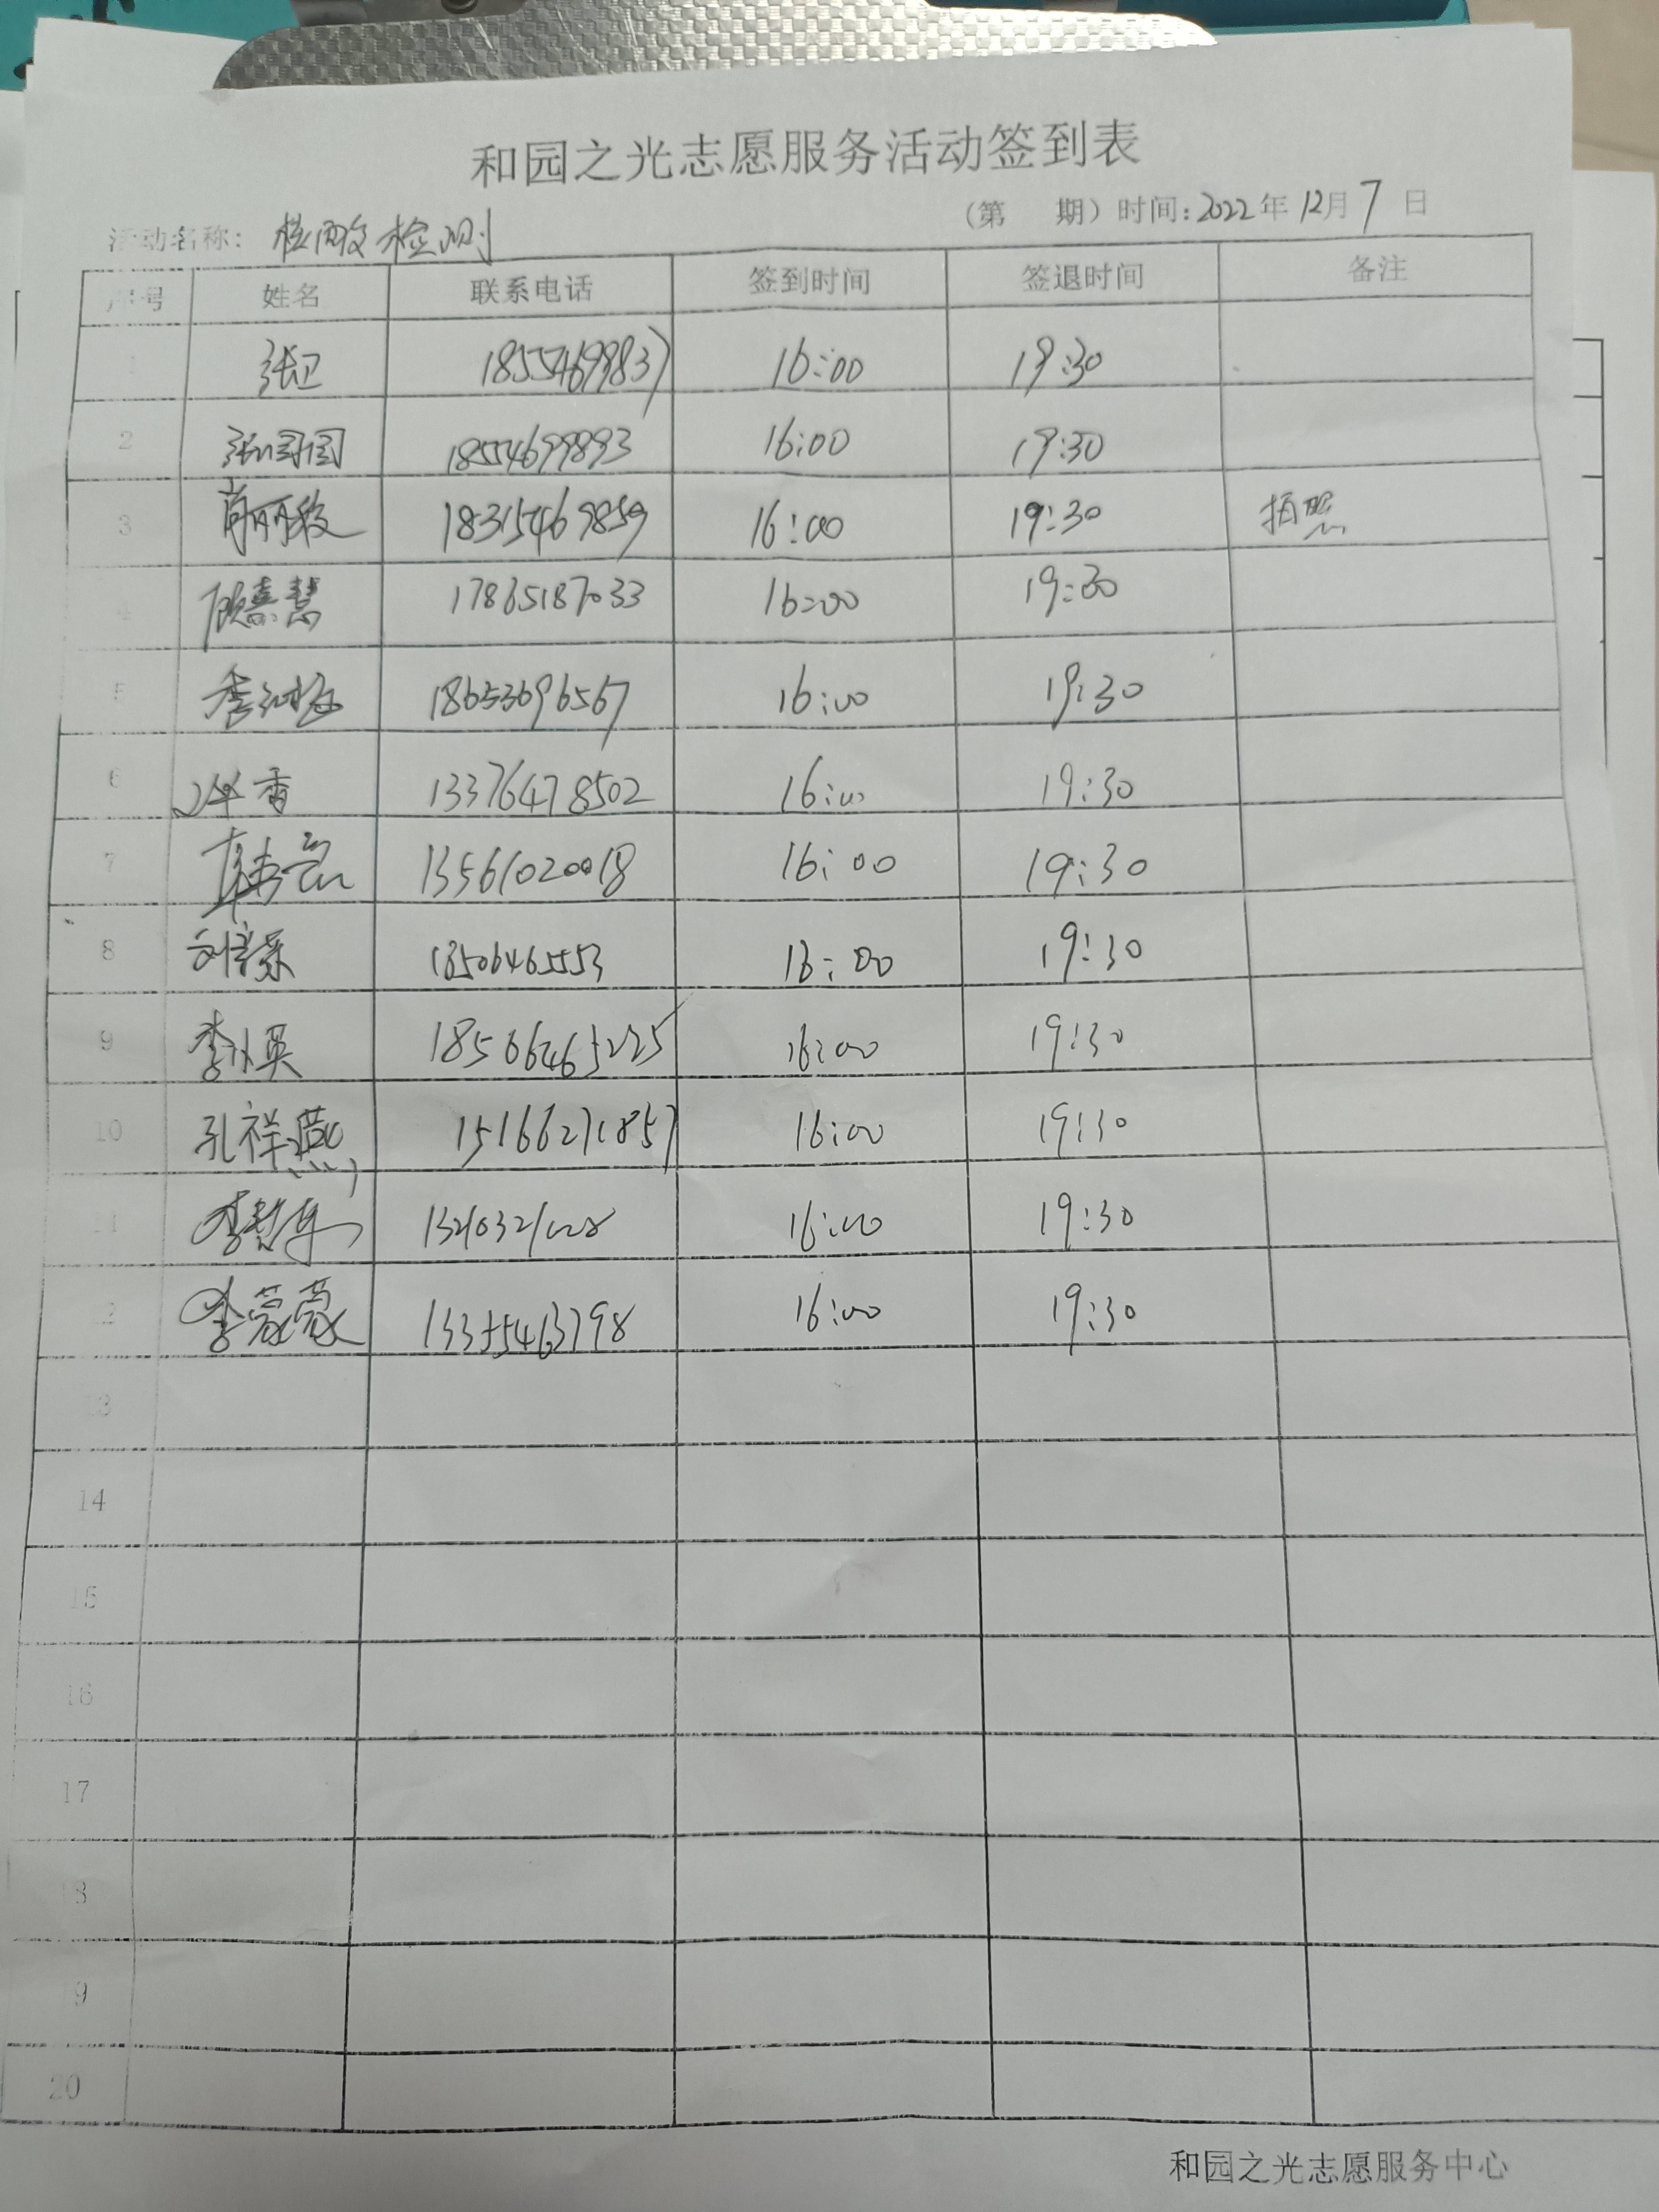 和园之光志愿服务活动签到表
(第 期) 时间: 2022年 12月 7 日
活动名称: 核酸检测
序号 姓名 联系电话 签到时间 签退时间 备注
1 张卫 18554699837 16:00 19:30
2 张圆圆 18554699893 16:00 19:30
3 18315469859 16:00 19:30 拍照
4 顾熹慧 17865187033 16:00 19:30
5 18653696567 16:00 19:30
6 香 13376478502 16:00 19:30
7 13561020018 16:00 19:30
8 18506465553 16:00 19:30
9 李小英 18506465225 16:00 19:30
10 孔祥燕 15166271857 16:00 19:30
11 16:00 19:30
12 李蒙蒙 13355463798 16:00 19:30
13
14
15
16
17
18
19
20
和园之光志愿服务中心